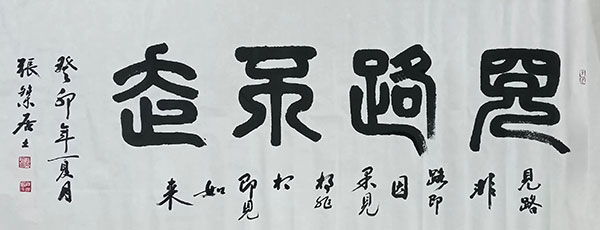 見路不走
見路
非
路即
因
果見
相非
相
即見
如
来
癸卯年夏月
張居士